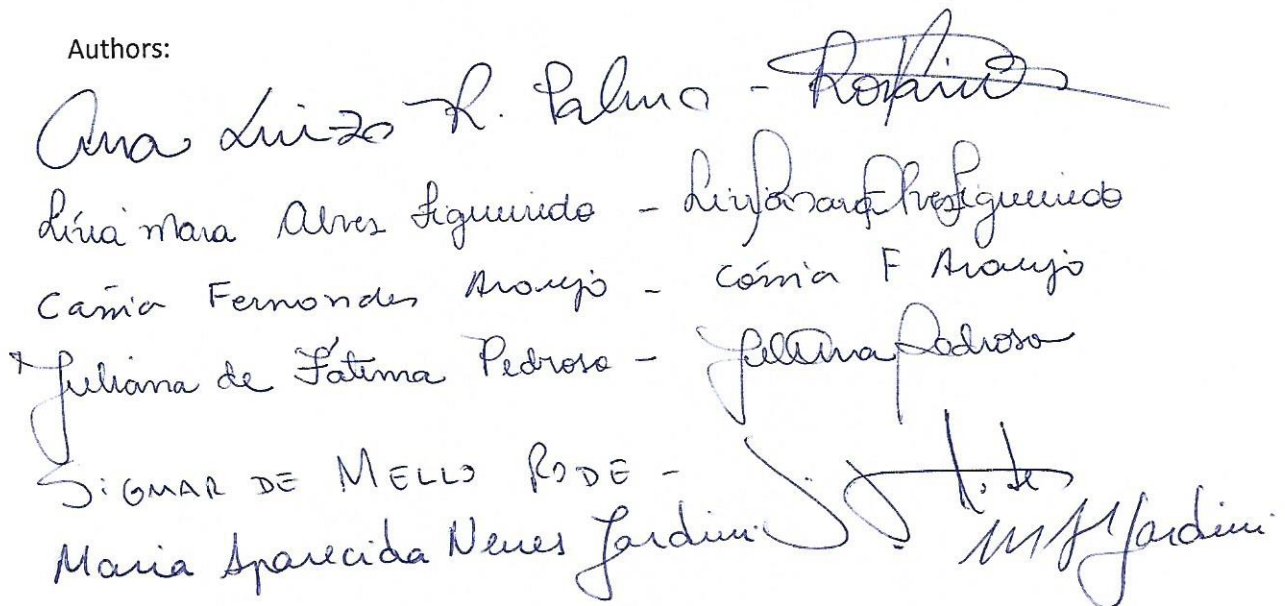 Authors:
Ana Luiza R. Palma -
Lívia Mara Alves Figueiredo - Lívia Mara Alves Figueiredo
Cássia Fernandes Araujo - Cássia F Araujo
Juliana de Fátima Pedroso - Juliana Pedroso
SIGMAR DE MELLO RODE -
Maria Aparecida Neves Jardini MANJardini